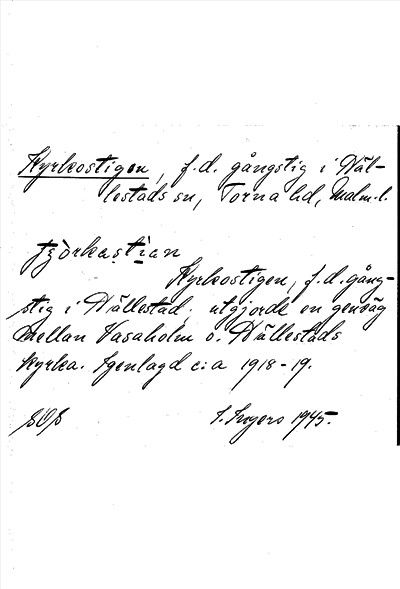 Kyrkostigen, f.d. gångstig i Häl-
lestads sn, Torna hd, Malm.l.
Kyrkostigen, f.d. gång-
stig i Hällestad, utgjorde en genväg
mellan Vasaholm o. Hällestads
kyrka. Igenlagd c:a 1918-19.
SOS
I. Ingers 1945.